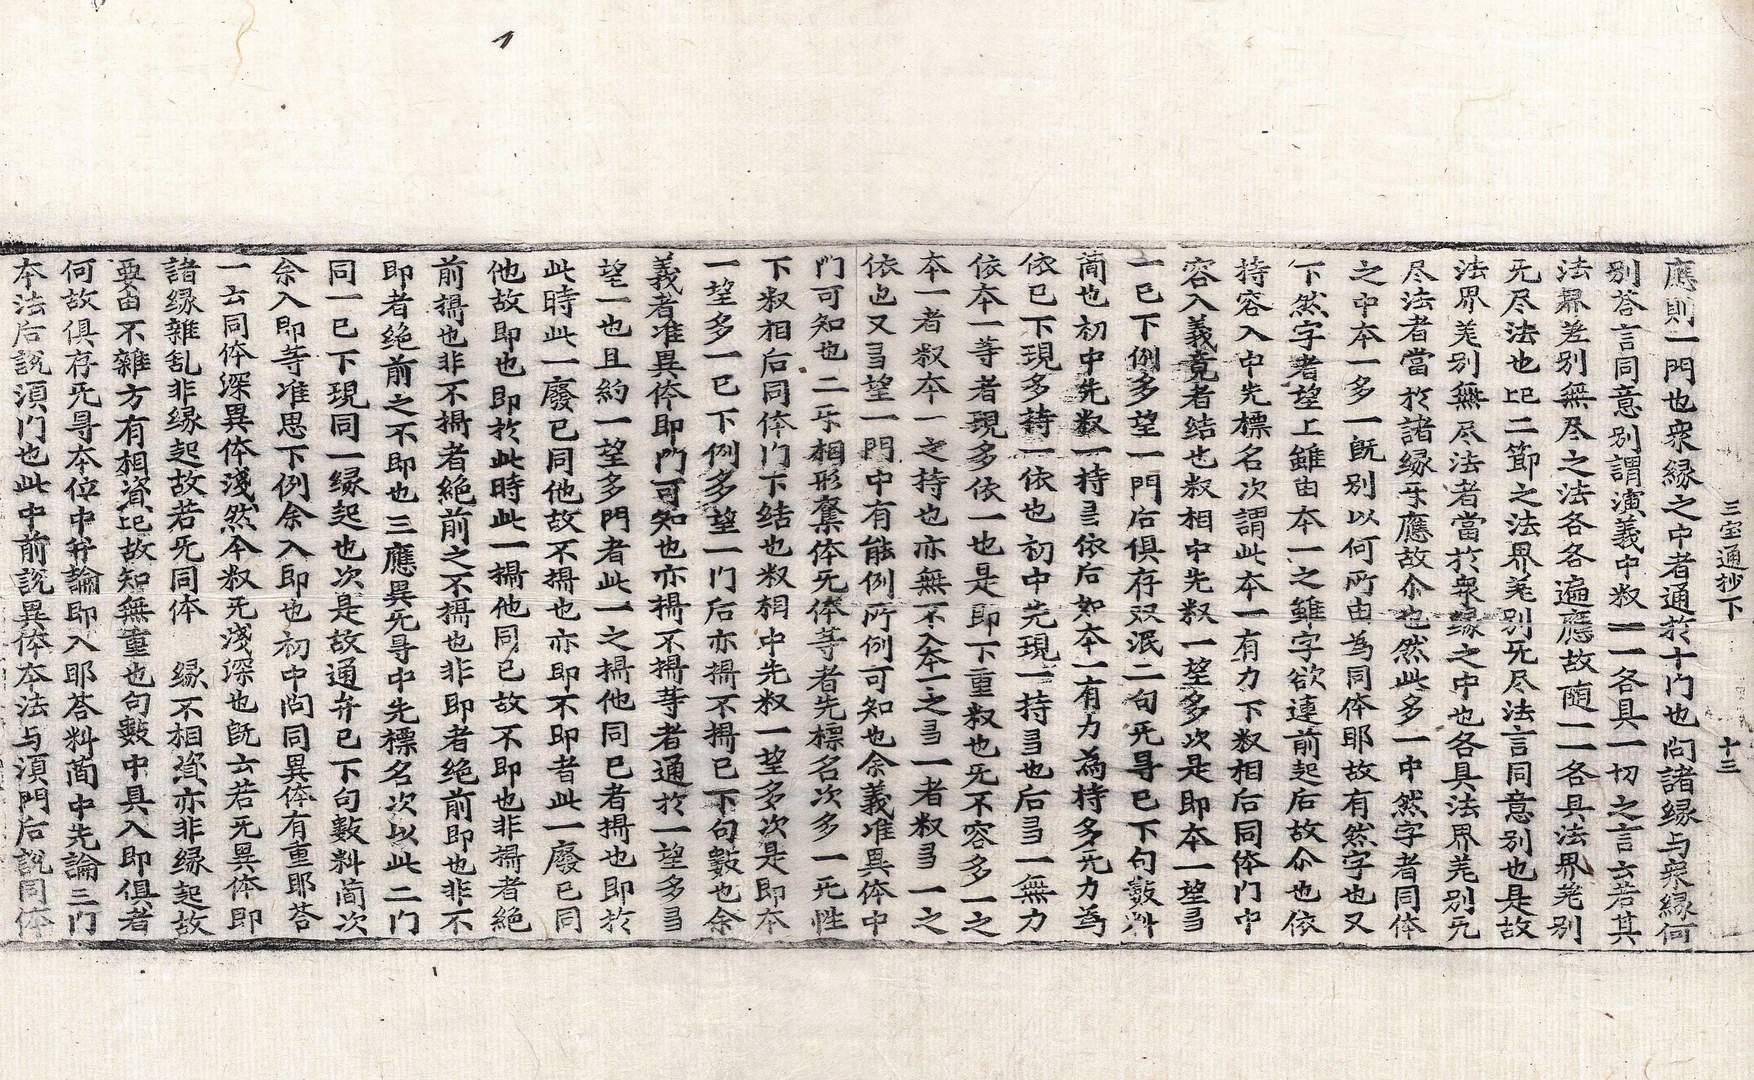 三宝通抄下　十三
應則一門也衆緣之中者通扵十门也问諸緣与衆緣何
别荅言同意别謂演義中叙一一各具一切之言云若其
法界差别無尽之法各各遍應故随一一各具法界差别
无尽法也此二節之法界差别无尽法言同意别也是故
法界差别無尽法者當扵衆緣之中也各具法界差别无
尽法者當扵諸緣互應故尒也然此多一中然字者同体
之中本一多一旣别以何所由為同体耶故有然字也又
下然字者望上雖由本一之雖字欲連前起后故尒也依
持容入中先標名次謂此本一有力下叙相后同体门中
容入義竟者结也叙相中先叙一望多次是即本一望彐
一已下例多望一門后俱存双泯二句无㝵已下句數料
简也初中先叙一持彐依后如本一有力為持多无力為
依已下現多持一依也初中先現一持彐也后彐一無力
依本一等者現多依一也是即下重叙也无不容多一之
本一者叙本一之持也亦無不入本一之彐一者叙彐一之
依也又彐望一門中有能例所例可知也余義准異体中
门可知也二互相形奪体无体等者先標名次多一无性
下叙相后同体门下结也叙相中先叙一望多次是即本
一望多一已下例多望一门后亦攝不攝已下句數也余
義者准異体即门可知也亦攝不攝等者通扵一望多彐
望一也且約一望多門者此一之攝他同已者攝也即扵
此時此一廢已同他故不攝也亦即不即者此一廢已同
他故即也即扵此時此一攝他同已故不即也非攝者絶
前攝也非不攝者絶前之不攝也非即者绝前即也非不
即者绝前之不即也三應異无㝵中先標名次以此二门
同一已下現同一緣起也次是故通弁已下句數料简次
余入即等准思下例余入即也初中问同異体有重耶荅
一云同体深異体淺然今叙无淺深也旣云若无異体即
諸緣雜乱非緣起故若无同体　緣不相資亦非緣起故
要由不雜方有相資此故知無重也句數中具入即俱者
何故俱存无㝵本位中弁論即入耶荅料简中先論三门
本法后説湏门也此中前説異体本法与湏門后説同体